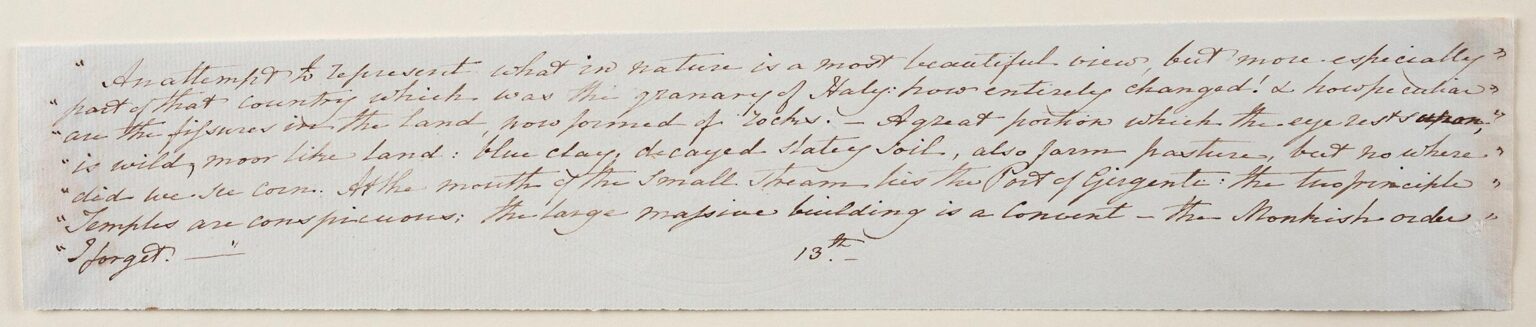 " An attempt to represent what in nature is a most beautiful view, but more especially "
" part of that country which was the granary of Italy: how entirely changed! & how peculiar "
" are the fissures in the land, now formed of rocks. — A great portion which the eye rests upon, "
" is wild, moor like land: blue clay, decayed slatey soil, also farm pasture, but no where "
" did we see corn. At the mouth of the small stream lies the Port of Girgente: the two principle "
" Temples are conspicuous; the large massive building is a Convent — the Monkish order "
" I forget. — "
13.th —